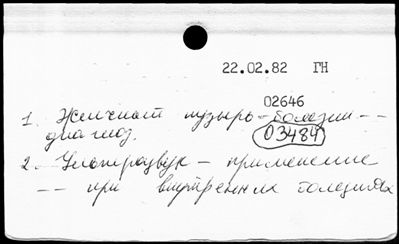 22.02.82 ГН
02646
1. Желчный пузырь - болезни --
03484
диагноз.
2. Ультразвук - применение
-- при внутренних болезнях